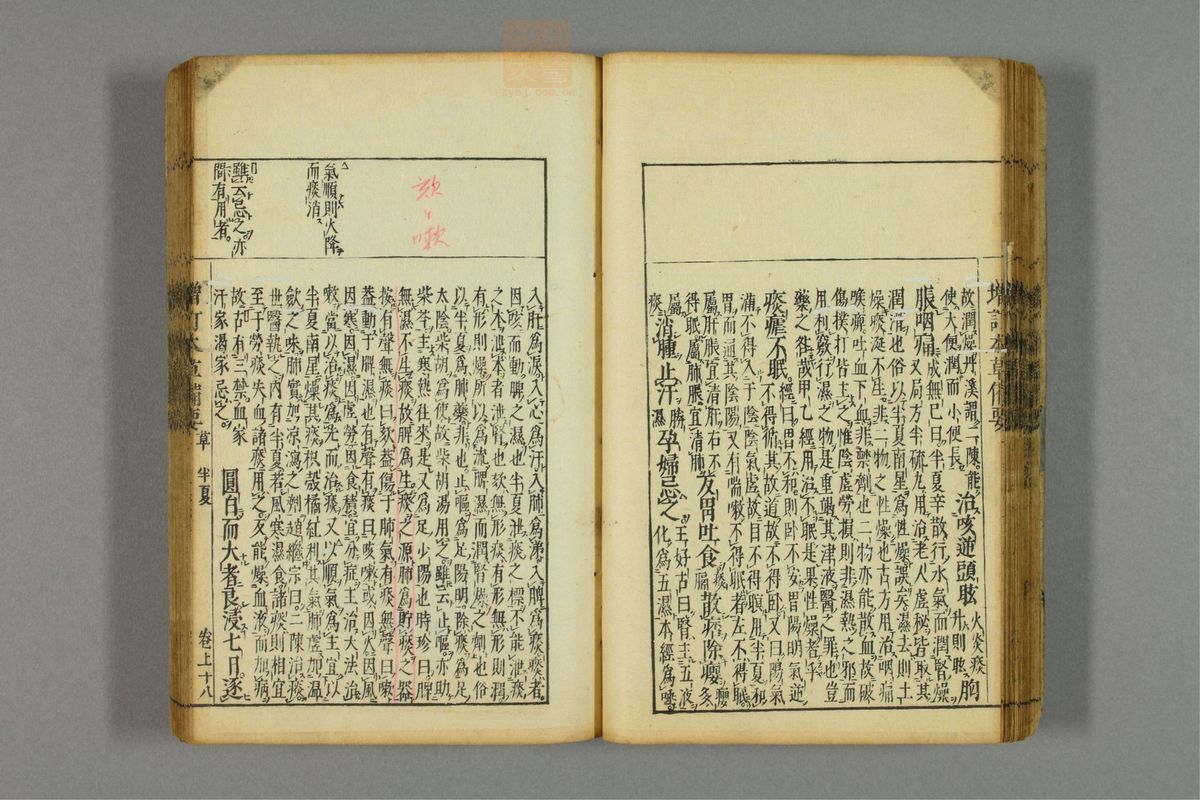 增訂本草備要
故潤燥丹溪謂二陳能
使大便潤而小便長
治咳逆頭眩
火炎痰
升則眩
胸
脹咽痛
成無已曰半夏辛散行水氣而潤腎燥
又局方半硫丸用治老人虛秘皆取其
潤滑也俗以半夏南星為性燥誤矣濕去則土
燥痰涎不生非二物之性燥也古方用治咽痛
喉痺吐血下血非禁劑也二物亦能散血故破
傷撲打皆主之惟陰虛勞損則非濕熱之邪而
用利竅行濕之物是重竭其津液醫之罪也豈
藥之咎哉甲乙經用治不眠是果性燥者乎
痰瘧不眠
經曰胃不和則卧不安胃陽明氣逆
不得從其故道故不得卧又曰陽氣
滿不得入于陰陰氣虛故目不得瞑用半夏和
胃而通其陰陽又有喘嗽不得眠者左不得眠
屬肝脹宜清肝右不
得眠屬肺脹宜清肺
反胃吐食
痰
膈
散痞除癭
癭多
屬
痰
消腫止汗
勝
濕
孕婦忌之
王好古曰腎主五液
化為五濕本經為唾
氣順則火降
而痰消
雖云忌之亦
間有用者
欬嗽
入肝為淚入心為汗入肺為涕入脾為痰痰者
因咳而動脾之濕也半夏泄痰之標不能泄痰
之本泄本者泄腎也欬無形痰有形無形則潤
有形則燥所以為流脾濕而潤腎燥之劑也俗
以半夏為肺藥非也止嘔為足陽明除痰為足
太陰柴胡為使故柴胡湯用之雖云止嘔亦助
柴芩主寒熱往來是又為足少陽也時珍曰脾
無濕不生痰故脾為生痰之源肺為貯痰之器
按有聲無痰曰欬蓋傷于肺氣有痰無聲曰嗽
蓋動于脾濕也有聲有痰曰咳嗽或因火因風
因寒因濕因虛勞因食積宜分症主治大法治
嗽當以治痰為先而治痰又以順氣為主宜以
半夏南星燥其痰枳殼橘紅利其氣肺虛加溫
歛之味肺實加涼瀉之劑趙繼宗曰二陳治痰
世醫執之內有半夏若風寒濕食諸痰則相宜
至于勞痰失血諸痰用之反能燥血液而加病
故古有三禁血家
汗家渴家忌之
圓白而大者良浸七日逐
增訂本草備要 草 半夏 卷上十八